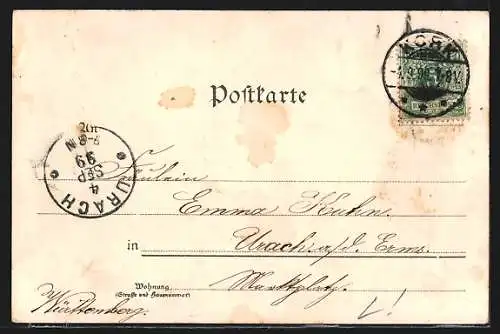 Postkarte
An
Fräulein
Emma Kuhn
in Urach a/d. Erms.
Wohnung
(Strasse und Hausnummer)
Marktplatz.
Württemberg.
URACH
4
SEP
99